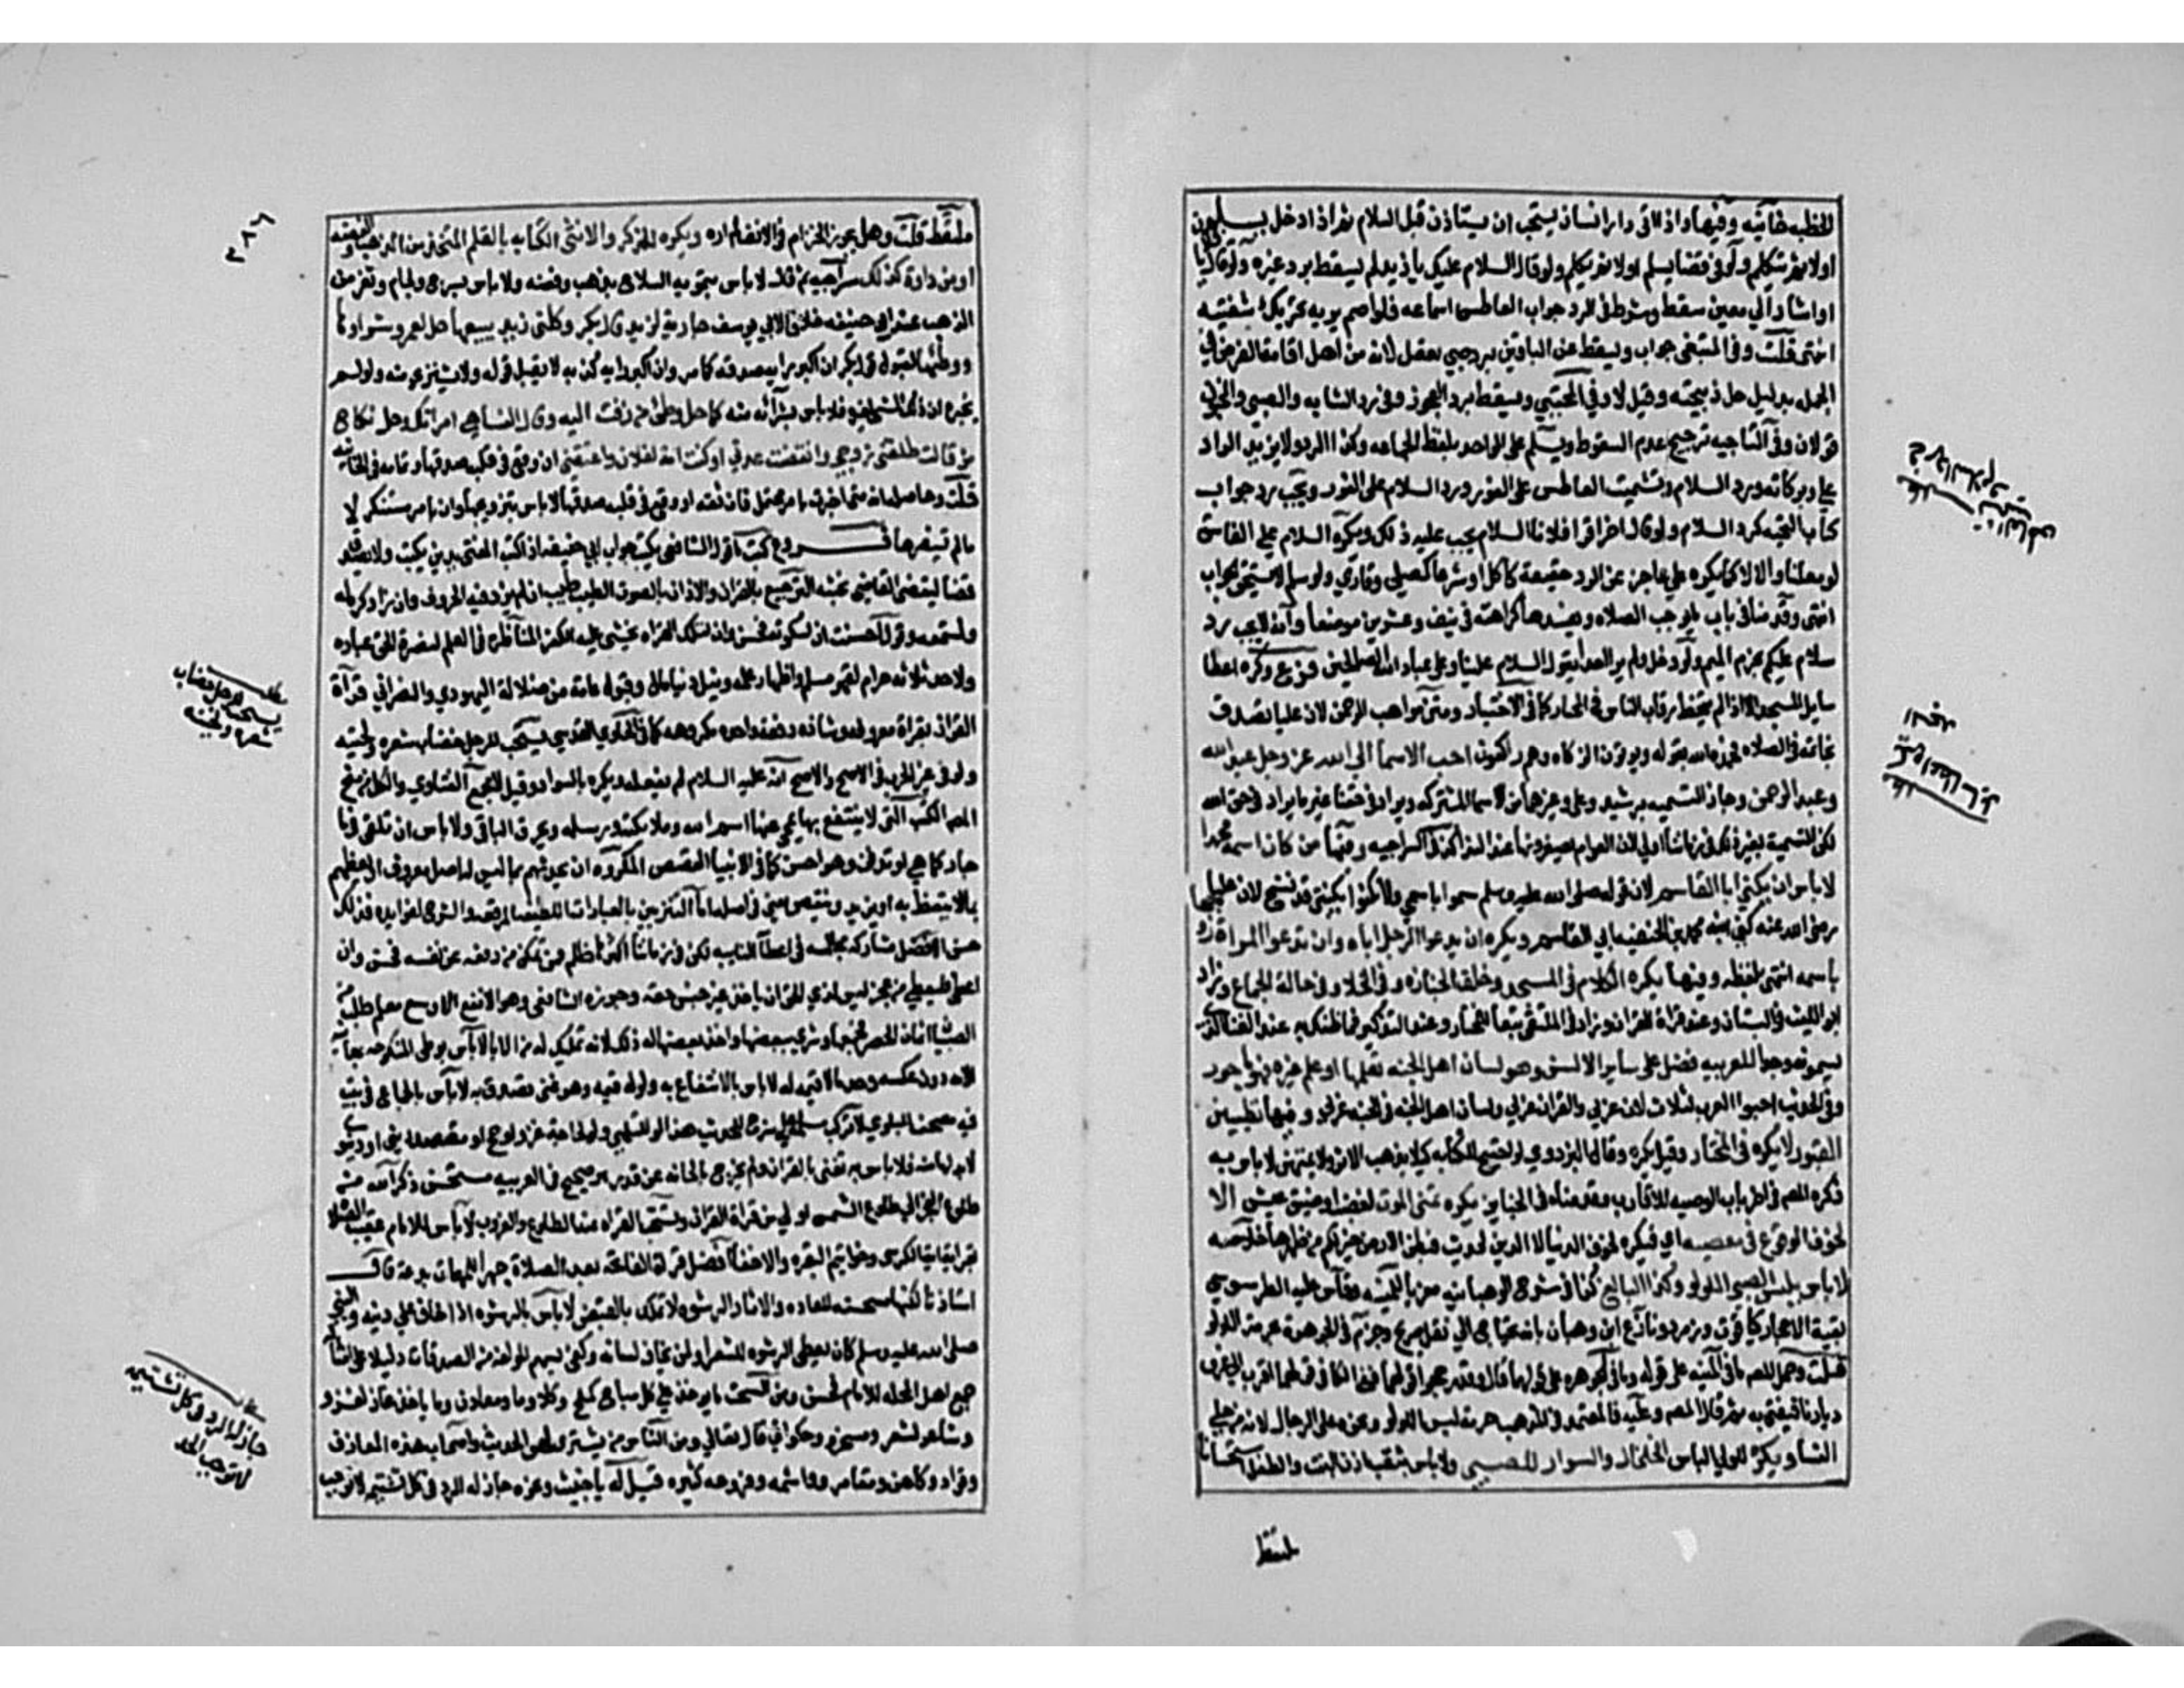 الخطبه خانيه وفيها واذا اتى دار انسان يجب ان يستاذن قبل السلام ثم اذا دخل يسلم
اولا ثم يتكلم ولو في فضا يسلم اولا ثم يتكلم ولو قال السلام عليك يا زيد لم يسقط برد غيره ولو قال يا
او اشار الي معين سقط وشرط في الرد جواب العاطس اسماعه فلو اصم يريه تحريك شفتيه
انتهى قلت وفي المبتغى ويسقط عن الباقين برد صبي يعقل لانه من اهل اقامة الفرض في
الجمله بدليل حل ذبيحته وقيل لا وفي المجتبي ويسقط برد العجوز وفي رد الشابه والصبي والمجنون
قولان وفي التاجيه ترجيح عدم السقوط ويسلم على الواحد بلفظ الجماعه وكذا الرد ولا يزيد الراد
علي وبركاته ورد السلام وتشميت العاطس على الفور ورد السلام على الفور ويجب رد جواب
كتاب التحيه كرد السلام ولو قال اخر اقرا فلانا السلام يجب عليه ذلك ويكره السلام علي الفاسق
لو معلنا والا لا كما يكره على عاجز عن الرد حقيقة كاكل او شرعا كمصلي وقاري ولو سلم لا يستحق الجواب
انتهى وقدمنا في باب الصلاه كراهته في نيف وعشرين موضعا وانه لا يجب رد
سلام عليكم بجزم الميم ولو دخل ولم ير احدا يقول السلام علينا وعلى عباد الله الصالحين فرع وكره اعطا
سايل المسجد الا اذا لم يتخط رقاب الناس في المختار كما في الاختيار ومتن مواهب الرحمن لان عليا تصدق
بخاتمه في الصلاه فمدحه الله بقوله ويوتون الزكاه وهم راكعون احب الاسما الى الله عز وجل عبد الله
وعبد الرحمن وجاز التسميه برشيد وعلي وغيرهما من الاسما المشتركه ويراد في حقنا غير ما يراد في حق الله
لكن التسمية بغير ذلك في زماننا اولي لان العوام يصغرونها عند الندا كذا في السراجيه وفيها من كان اسمه محمدا
لا باس ان يكنى ابا القاسم لان قوله صلى الله عليه وسلم سموا باسمي ولا تكنوا بكنيتي قد نسخ لان عليا
رضي الله عنه كنى ابنه محمد بن الحنفيه ابي القاسم ويكره ان يدعوا الرجل اباه وان تدعوا المراة زوجها
باسمه انتهى بلفظه وفيها يكره الكلام في المسجد وخلف الجنازه وفي الخلا وفي حالة الجماع وزاد
ابو الليث في البستان وعند قراة القران وزاد في الملتقى تبعا للمختار وعند التذكير فما ظنك به عند الغنا الذي
يسمونه وجدا للعربيه فضل على ساير الالسن وهو لسان اهل الجنه من تعلمها او علم غيره فهو ماجور
وفي الحديث احبوا العرب لثلاث لاني عربي والقران عربي ولسان اهل الجنه في الجنه عربي وفيها تطيين
القبور لا يكره في المختار وقيل يكره وقال البزدوي لو احتيج للكتابه كيلا يذهب الاثر ولا يمتهن لا باس به
ذكره المصنف في اخر باب الوصيه للاقارب وقدمناه في الجنايز يكره تمنى الموت لغضب او ضيق عيش الا
لخوف الوقوع في معصيه اي فيكره لخوف الدنيا لا الدين لحديث فبطن الارض خير لكم من ظهرها خلاصه
لا باس بلبس الصبي اللولو وكذا البالغ كذا في شرح الوهبانيه معزيا للمنيه وقاس عليه الطرسوسي
بقية الاحجار كياقوت وزمرد ونازع ابن وهبان بانه يحتاج الي نقل صريح وجزم في الجوهرة بحرمة اللولو
قلت وحمل المصنف ما في المنيه على قوله وما في الجوهره على قولهما قال وقد رجحوا قولهما ففي الكافي قولهما اقرب الي عرف
ديارنا فيفتى به ثم قال المصنف وعليه فالمعتمد في المذهب حرمة لبس اللولو ونحوه على الرجال لانه من حلي
النسا ويكره للولي الباس الخلخال والسوار للصبي ولا باس بثقب اذن البنت والطفل استحسانا
ملتقط
ملتقط قلت وهل يجوز الخزام في الانف لم اره ويكره للذكر والانثى الكتابه بالقلم المتخذ من الذهب والفضه
او من دواة كذلك سراجيه ثم قال لا باس بتمويه السلاح بذهب وفضه ولا باس بسرج ولجام وثفر من
الذهب عند ابي حنيفه خلافا لابي يوسف جارية لزيد قال بكر وكلني زيد ببيعها حل لعمرو شراوها
ووطئها لقبول قول بكر ان اكبر رايه صدقه كما مر وان اكبر رايه كذبه لا يقبل قوله ولا يشتري منه ولو لم
يخبره ان ذلك الشي لغيره فلا باس بشرائه منه كما حل وطئ من زفت اليه وقال النسا هي امراتك وحل نكاح
من قالت طلقني زوجي وانقضت عدتي او كنت امة لفلان واعتقني ان وقع في قلبه صدقها وتمامه في الخانيه
قلت وحاصله انه متى اخبرت بامر محتمل فان ثقه او وقع في قلبه صدقها لا باس بتزوجها وان بامر مستنكر لا
ما لم يستفسرها فروع كتب ما قول الشافعي يكتب جواب ابي حنيفه اذا كتب المفتي يدين يكتب ولا يصدق
قضا ليقضي القاضي بحنثه الترجيع بالقران والاذان بالصوت الطيب طيب ان لم يزد فيه الحروف وان زاد كره له
ولمستمعه وقوله احسنت ان لسكوته فحسن وان لتلك القراه يخشى عليه الكفر المناظره في العلم لنصرة الحق عباده
ولاحد ثلاثه حرام لقهر مسلم واظهار علمه ونيل دنيا او مال وقبول عامة من ضلالة اليهودي والنصراني قراة
القران بقراة معروفه وشاذه دفعة واحده مكروهه كما في الحاوي القدسي يستحب للرجل خضاب شعره ولحيته
ولو في غير الحرب في الاصح والاصح انه عليه السلام لم يفعله ويكره بالسواد وقيل لا مجمع الفتاوي والكل من منح
المصنف الكتب التي لا ينتفع بها يمحى عنها اسم الله وملائكته ورسله ويحرق الباقي ولا باس ان تلقى في ماء
جار كما هي او تدفن وهو احسن كما في الانبيا القصص المكروه ان يحدثهم بما ليس له اصل معروف او يعظهم
بما لا يتعظ به او يزيد وينقص يعني في اصله اما التزيين بالعبارات اللطيفه المرققه والشرح لفوايده فذلك
حسن الافضل مشاركة اهل محلته في اعطا النايبه لكن في زماننا اكثرها ظلم فمن تمكن من دفعه عن نفسه فحسن وان
اعطى فليعط من عجز ليس لذي الحق ان ياخذ غير جنس حقه وجوزه الشافعي وهو الاوسع معلم طلب من
الصبيان اثمان الحصر فجمعها وشري ببعضها واخذ بعضها له ذلك لانه تمليك له من الابا لا باس بوطى المنكوحه بمعاينة
الامه دون عكسه وجد ما لا قيمة له لا باس بالانتفاع به ولو له قيمه وهو غني تصدق به لا باس بالجماع في بيت
فيه مصحف للبلوي لا تركب مسلمه على سرج للحديث هذا لو للتلهي ولو لحاجة غزو او حج او مقصد ديني او دنيوي
لا بد لها منه فلا باس به تغنى بالقران ولم يخرج بالحانه عن قدر هو صحيح في العربيه مستحسن ذكر الله من
طلوع الفجر الي طلوع الشمس اولي من قراة القران وتستحب القراه عند الطلوع والغروب لا باس للامام عقب الصلاة
بقراة اية الكرسي وخواتيم البقره والاخفا افضل قراة الفاتحه بعد الصلاة جهرا للمهمات بدعة قال
استاذنا لكنها مستحسنه للعاده والاثار الرشوه لا تملك بالقبض لا باس بالرشوه اذا خاف على دينه والنبي
صلى الله عليه وسلم كان يعطي الرشوه للشعرا ولمن يخاف لسانه وكفى بسهم المولفه من الصدقات دليلا على امثاله
جمع اهل المحله للامام فحسن ومن السحت ما يوخذ على كل مباح كملح وكلاء وما ومعادن وما ياخذه غاز لغزو و
وشاعر لشعر ومسخره وحكواتي قال تعالى ومن الناس من يشتري لهو الحديث واصحاب هذه المعازف
وقواد وكاهن ومقامر وواشمه وفروعه كثيره قيل له يا خبيث ونحوه جاز له الرد في كل شتيمه لا توجب
يستحب للرجل خضاب
شعره ولحيته
جاز له الرد في كل شتيمه
لا توجب الحد